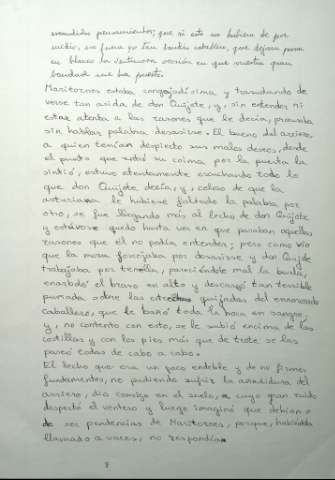 escondidos pensamientos; que si esto no hubiera de por
medio, no fuera yo tan sandio caballero, que dejara pasar
en blanco la venturosa ocasión en que vuestra gran
bondad me ha puesto.
Maritornes estaba congojadísima y trasudando de
verse tan asida de don Quijote, y, sin entender ni
estar atenta a las razones que le decía, procuraba
sin hablar palabra desasirse. El bueno del arriero,
a quien tenían despierto sus malos deseos, desde
el punto que entró su coima por la puerta la
sintió, estuvo atentamente escuchando todo lo
que don Quijote decía, y, celoso de que la
asturiana le hubiese faltado la palabra por
otro, se fue llegando más al lecho de don Quijote
y estúvose quedo hasta ver en que paraban aquellas
razones que él no podía entender; pero como vio
que la moza forcejaba por desasirse y don Quijote
trabajaba por tenella, pareciéndole mal la burla,
enarboló el brazo en alto y descargó tan terrible
puñada sobre las estrechas quijadas del enamorado
caballero, que le bañó toda la boca en sangre,
y, no contento con esto, se le subió encima de las
costillas y con los pies más que de trote se las
paseó todas de cabo a cabo.
El lecho que era un poco endeble y de no firmes
fundamentos, no pudiendo sufrir la añadidura del
arriero, dio consigo en el suelo, a cuyo gran ruido
despertó el ventero y luego imaginó que debían
de ser pendencias de Maritornes, porque, habiéndola
llamado a voces, no respondía